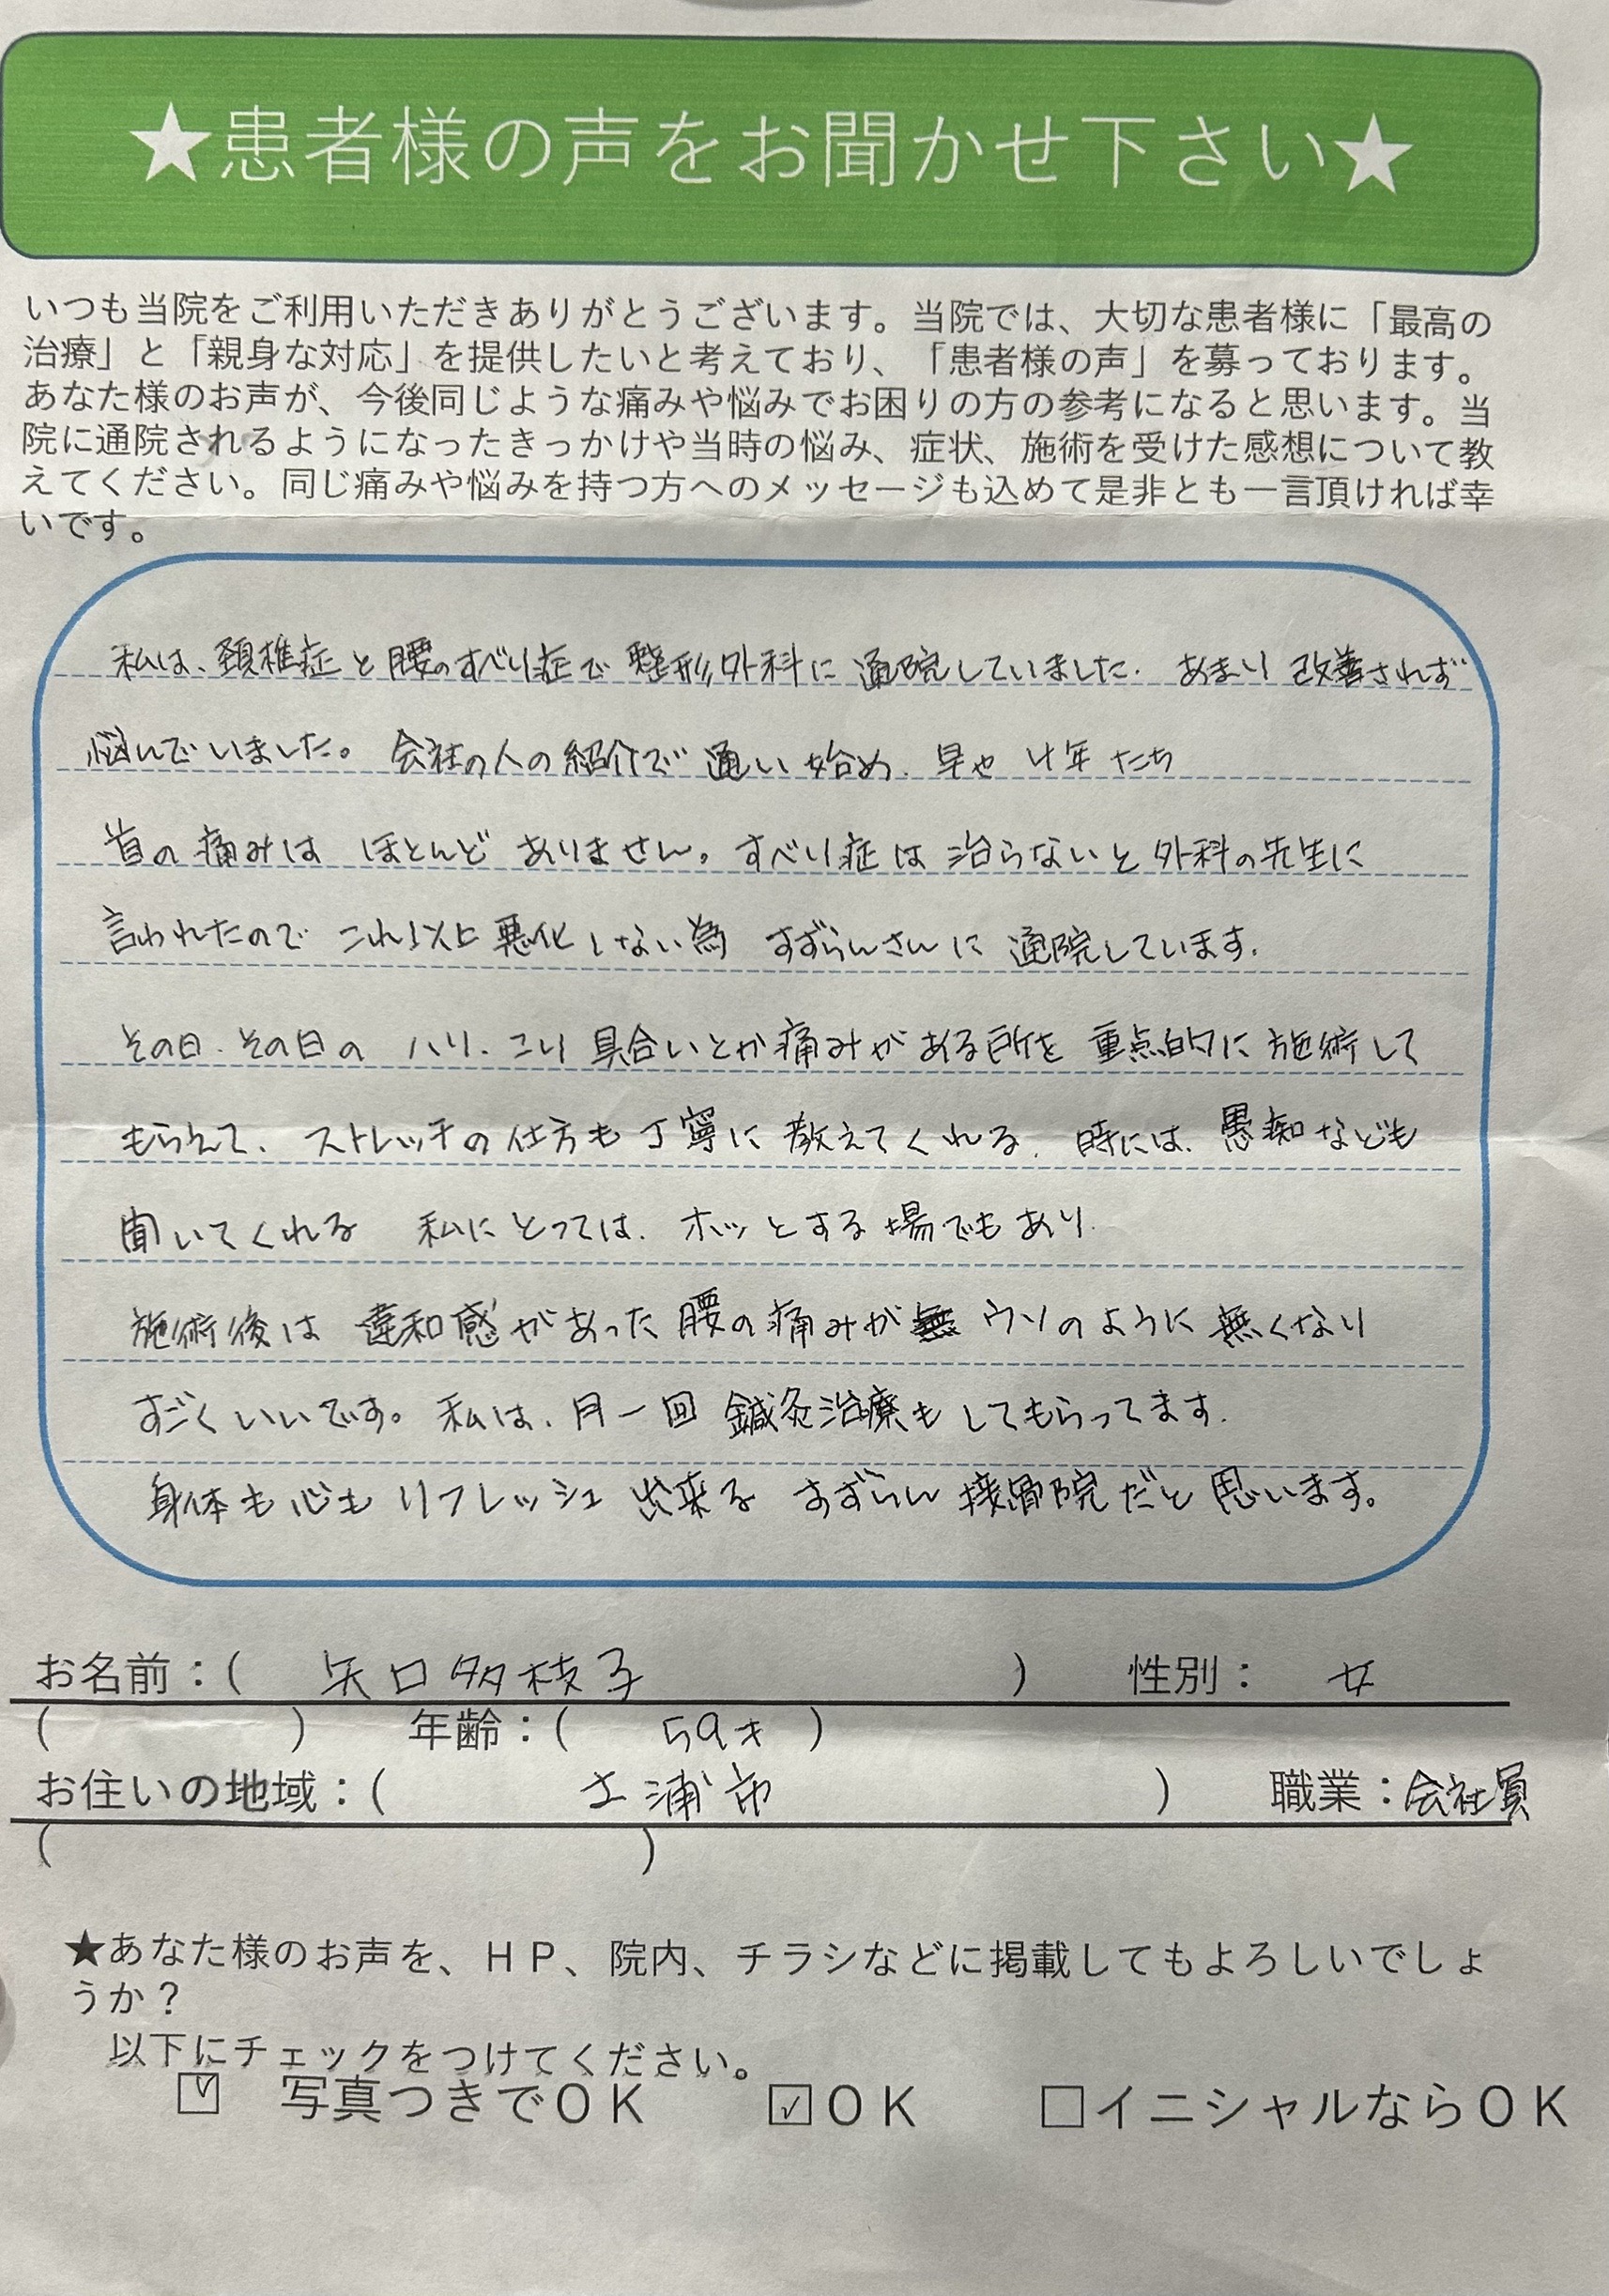 ★患者様の声をお聞かせ下さい★
いつも当院をご利用いただきありがとうございます。当院では、大切な患者様に「最高の
治療」と「親身な対応」を提供したいと考えており、「患者様の声」を募っております。
あなた様のお声が、今後同じような痛みや悩みでお困りの方の参考になると思います。当
院に通院されるようになったきっかけや当時の悩み、症状、施術を受けた感想について教
えてください。同じ痛みや悩みを持つ方へのメッセージも込めて是非とも一言頂ければ幸
いです。
私は、頚椎症と腰のすべり症で整形外科に通院していました。あまり改善されず
悩んでいました。会社の人の紹介で通い始め、早や4年たち
首の痛みはほとんどありません。すべり症は治らないと外科の先生に
言われたのでこれ以上悪化しない為すずらんさんに通院しています。
その日、その日のハリ、こり具合いとか痛みがある所を重点的に施術して
もらえて、ストレッチの仕方も丁寧に教えてくれる。時には、愚痴なども
聞いてくれる 私にとっては、ホッとする場でもあり、
施術後は違和感があった腰の痛みがウソのように無くなり
すごくいいです。私は、月一回鍼灸治療もしてもらってます。
身体も心もリフレッシュ出来るすずらん接骨院だと思います。
お名前：( 矢口多枝子 ) 性別： 女
( ) 年齢：( 59才 )
お住いの地域：( 土浦市 ) 職業：会社員
( )
★あなた様のお声を、ＨＰ、院内、チラシなどに掲載してもよろしいでしょ
うか？
以下にチェックをつけてください。
☑ 写真つきでＯＫ ☑ＯＫ □イニシャルならＯＫ